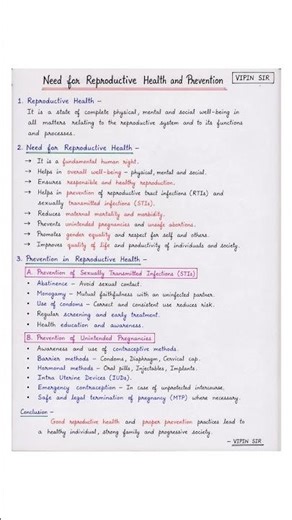 Need for Reproductive Health and Prevention
VIPIN SIR
1. Reproductive Health –
It is a state of complete physical, mental and social well-being in
all matters relating to the reproductive system and to its functions
and processes.
2. Need for Reproductive Health –
→ It is a fundamental human right.
→ Helps in overall well-being – physical, mental and social.
→ Ensures responsible and healthy reproduction.
→ Helps in prevention of reproductive tract infections (RTIs) and
sexually transmitted infections (STIs).
→ Reduces maternal mortality and morbidity.
→ Prevents unintended pregnancies and unsafe abortions.
→ Promotes gender equality and respect for self and others.
→ Improves quality of life and productivity of individuals and society.
3. Prevention in Reproductive Health –
A. Prevention of Sexually Transmitted Infections (STIs)
• Abstinence – Avoid sexual contact.
• Monogamy – Mutual faithfulness with an uninfected partner.
• Use of condoms – Correct and consistent use reduces risk.
• Regular screening and early treatment.
• Health education and awareness.
B. Prevention of Unintended Pregnancies
• Awareness and use of contraceptive methods.
• Barrier methods – Condoms, Diaphragm, Cervical cap.
• Hormonal methods – Oral pills, Injectables, Implants.
• Intra Uterine Devices (IUDs).
• Emergency contraception – In case of unprotected intercourse.
• Safe and legal termination of pregnancy (MTP) where necessary.
Conclusion –
Good reproductive health and proper prevention practices lead to
a healthy individual, strong family and progressive society.
– VIPIN SIR